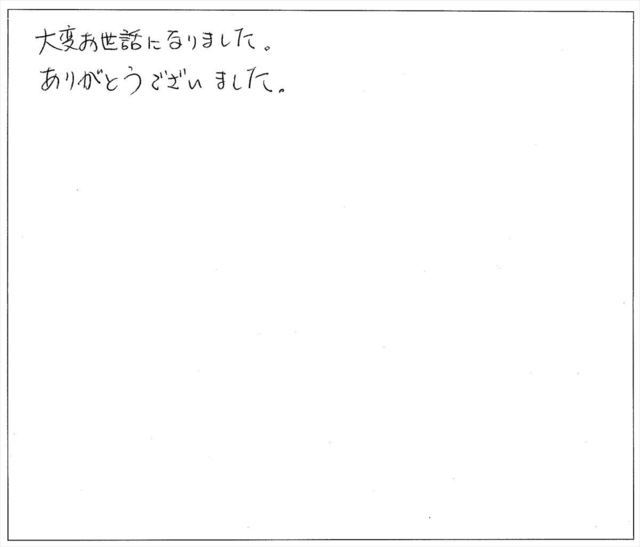 大変お世話になりました。
ありがとうございました。